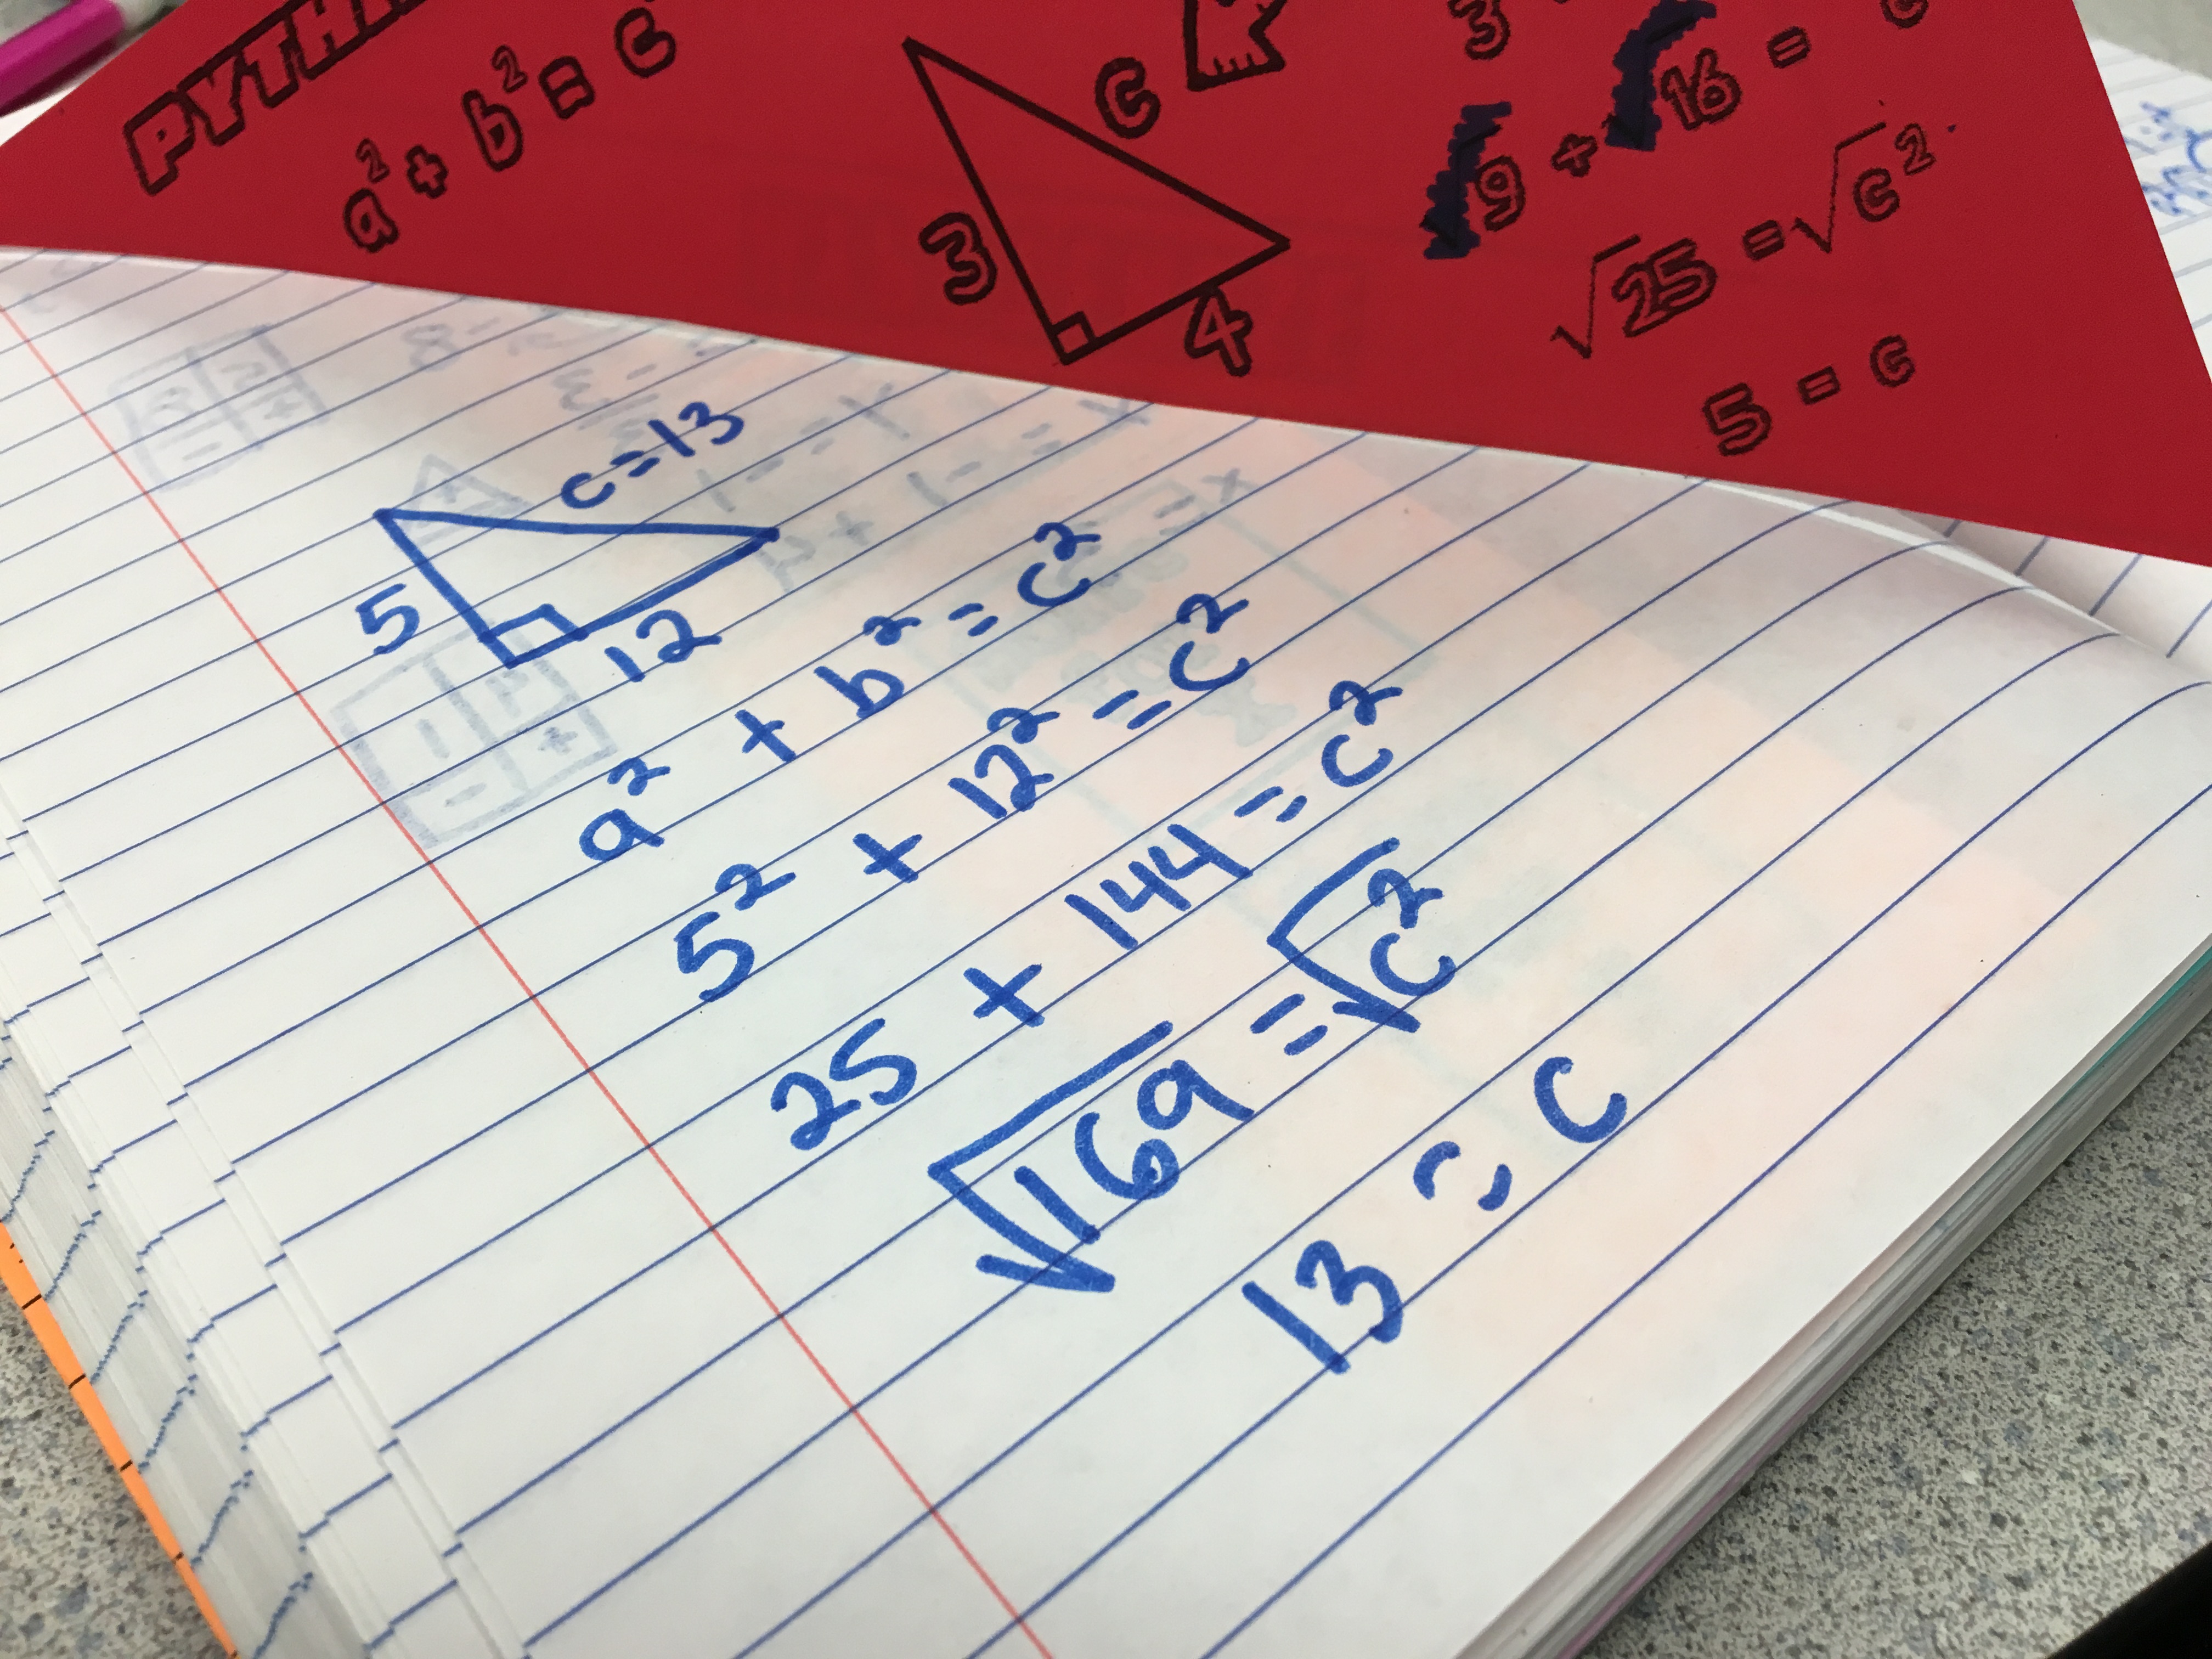 a² + b² = c
C
3
4
9 + 16 = c
√25 = √c²
5 = c
c=13
5
12
a² + b² = c²
5² + 12² = c²
25 + 144 = c²
√169 = √c²
13 = c